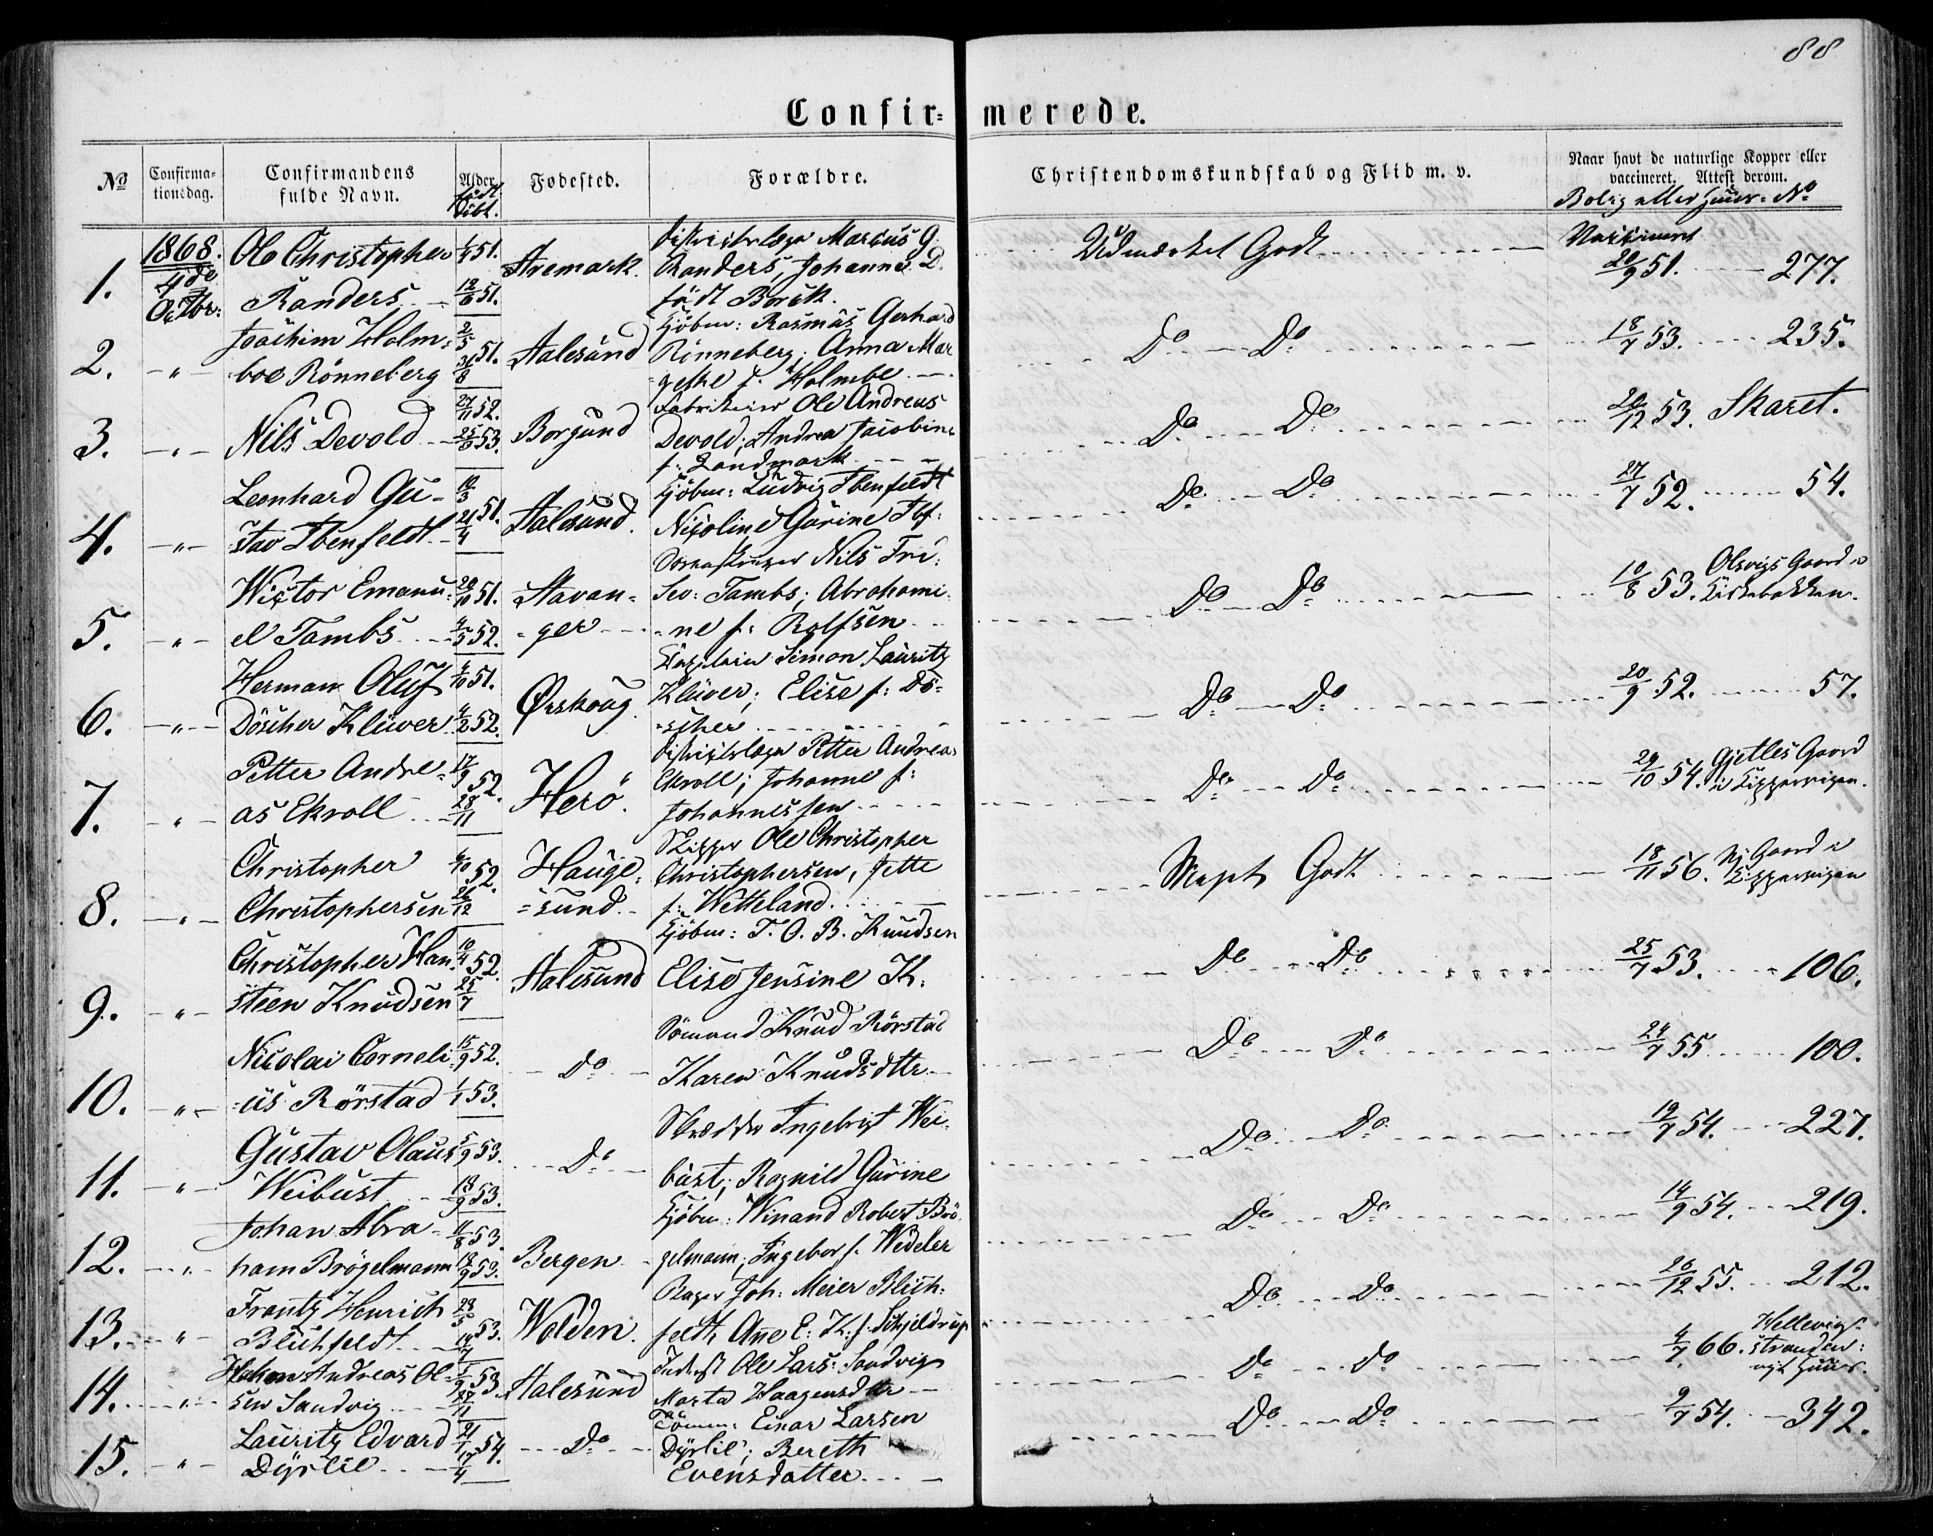 88
Confirmerede.
No
Confirmationsdag.
Confirmandens fulde Navn.
Alder
født
döbt.
Fødested.
Forældre.
Christendomskundskab og Flid m. v.
Naar havt de naturlige Kopper eller vaccineret. Attest derom.
Bolig eller Huus-No
1. 1868. 4de Octbr: Ole Christopher Randers 1/4 51. 12/6 51. Aremark. Distriktslæge Marius G. Randers, Johanne D. född Borck. Udmærket Godt Vaccineret 20/9 51. 277.
2. -"- Joachim Holmboe Rönneberg 2/5 31/8 51. Aalesund Kjöbm: Rasmus Gerhard Rönneberg; Anna Margethe f. Holmboe Do Do 18/7 53. 235.
3. -"- Nils Devold 27/11 52. 25/3 53. Borgund Fabrikeier Ole Andreas Devold; Andrea Jacobine f: Landmark Do Do 20/12 53. Skaret.
4. -"- Leonhard Gustav Ibenfeldt 10/3 21/4 51. Aalesund. Kjöbm: Ludvig Ibenfeldt Nicoline Gurine Do Do 27/7 52. 54.
5. -"- Wictor Emanuel Tambs 20/10 51. 4/5 52. Stavan-ger Nils Fri: Sev: Tambs; Abrahamine f: Rolfsen Do Do 10/8 53. Olsvigs Gaard i Kirkebakken.
6. -"- Herman Oluf Döscher Klüwer 4/10 51. 4/2 52. Ørskoug Captain Simon Lauritz Klüver; Elise f: Döscher Do Do 20/9 52. 57.
7. -"- Petter Andreas Ekroll 17/9 52. 28/11 Herö. Distriktslæge Petter Andreas Ekroll; Johanne f: Johannessen Do Do 29/10 54. Gjetles Gaard i Kippervigen.
8. -"- Christopher Christophersen 4/10 52. 26/12 Hauge-sund Skipper Ole Christopher Christophersen, Jette f: Wetteland Meget Godt 18/11 56. Ny Gaard i Kippervigen
9. -"- Christopher Hansteen Knudsen 10/4 52. 25/7 Aalesund Kjöbm: T. O. B. Knudsen Elise Jensine K: Do Do 25/7 53. 106.
10. -"- Nicolai Cornelius Rörstad 15/9 52. 1/1 53. Do Sömand Knud Rörstad Karen Knudsdttr Do Do 24/7 55 100.
11. -"- Gustav Olaus Weibust 5/9 53. 18/9 53. Do Skrædder Ingebrigt Weibust; Ragnild Gurine Do Do 19/7 54. 227.
12. -"- Johan Abraham Brögelmann 11/8 53. 18/9 53. Bergen Kjöbm: Winand Robert Brögelmann; Ingebor f. Wedeler Do Do 14/9 54. 219.
13. -"- Frantz Henrich Blichfeldt 28/5 14/7 53. Wolden. Bager Joh: Meier Blichfeldt, Añe E: K: f. Schjeldrup Do Do 26/12 55. 212.
14. -"- Johan Andreas Olsen Sandvig 1/9 53 27/11 Aalesund Inderst Ole Lars: Sandvig Marta Haagensdttr Do Do 4/7 66. Hellevigstranden: nyt Huus.
15. -"- Lauritz Edvard Dyrlie 21/1 54. 17/4 Do Tömm: Einar Larsen Dyrlie; Bereth Evensdatter Do Do 9/7 54. 342.